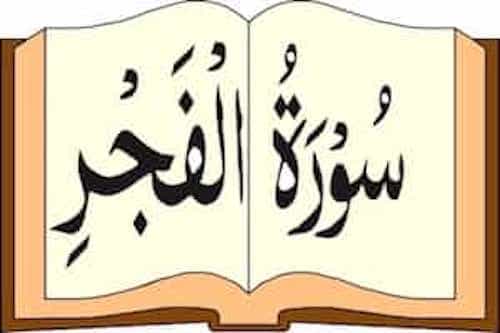 سُوْرَةُ الْفَجْرِ